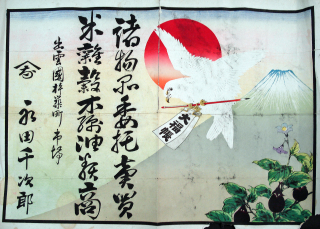 諸物品委托賣買
米雜穀木綿油類商
出雲國杵築町 市場
永田千次郎
大福帳